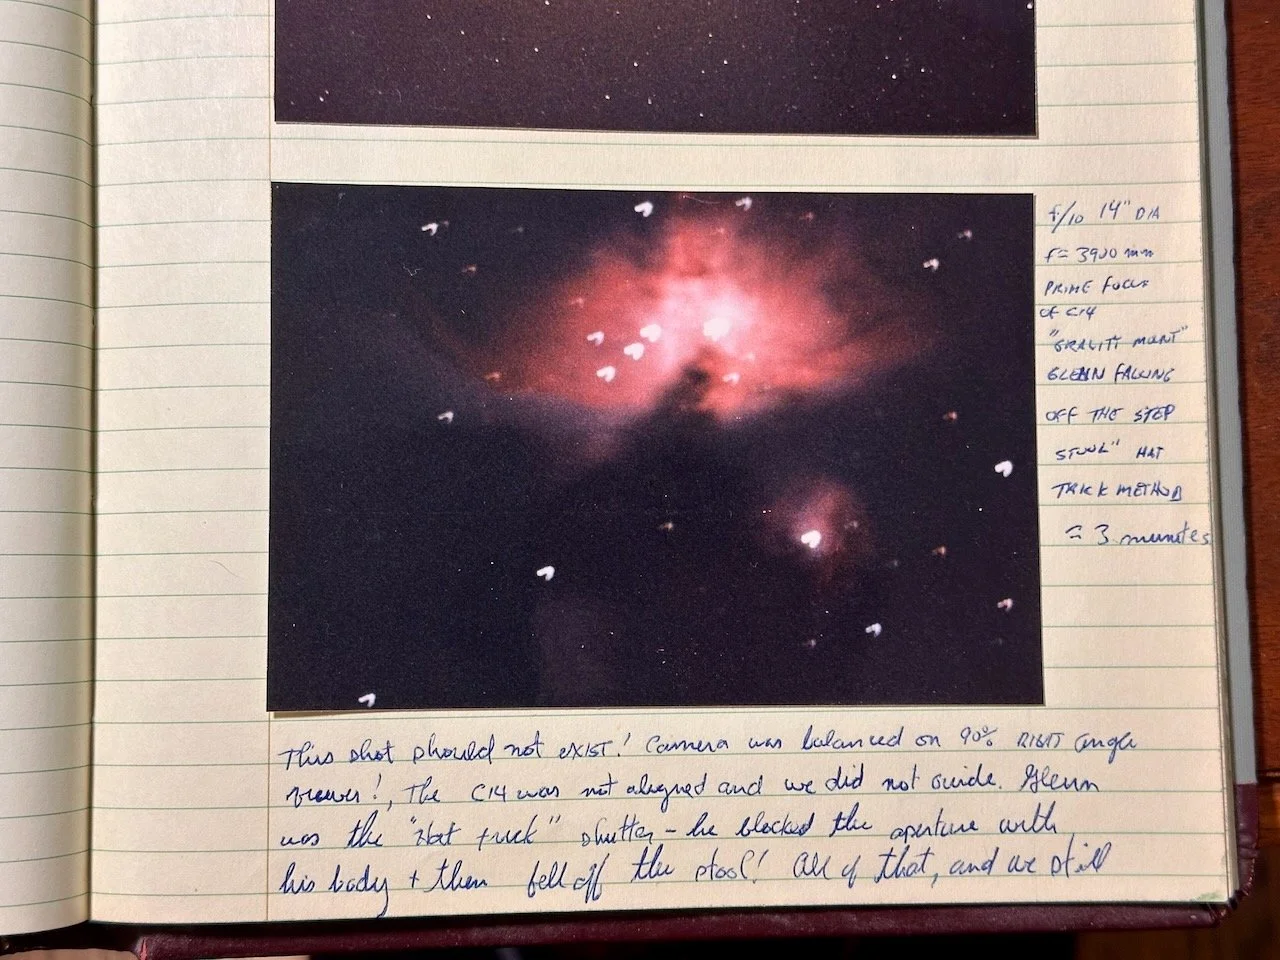 f/10 14" DIA
f= 3900 mm
PRIME FOCUS
OF C14
"GRAVITY MOUNT"
GLENN FALLING
OFF THE STEP
STOOL" HAT
TRICK METHOD
≈ 3 minutes
This shot should not EXIST! Camera was balanced on 90° RIGHT angle
viewer!, The C14 was not aligned and we did not guide. Glenn
was the "Hat trick" shutter - he blocked the aperture with
his body + then fell off the stool! All of that, and we still